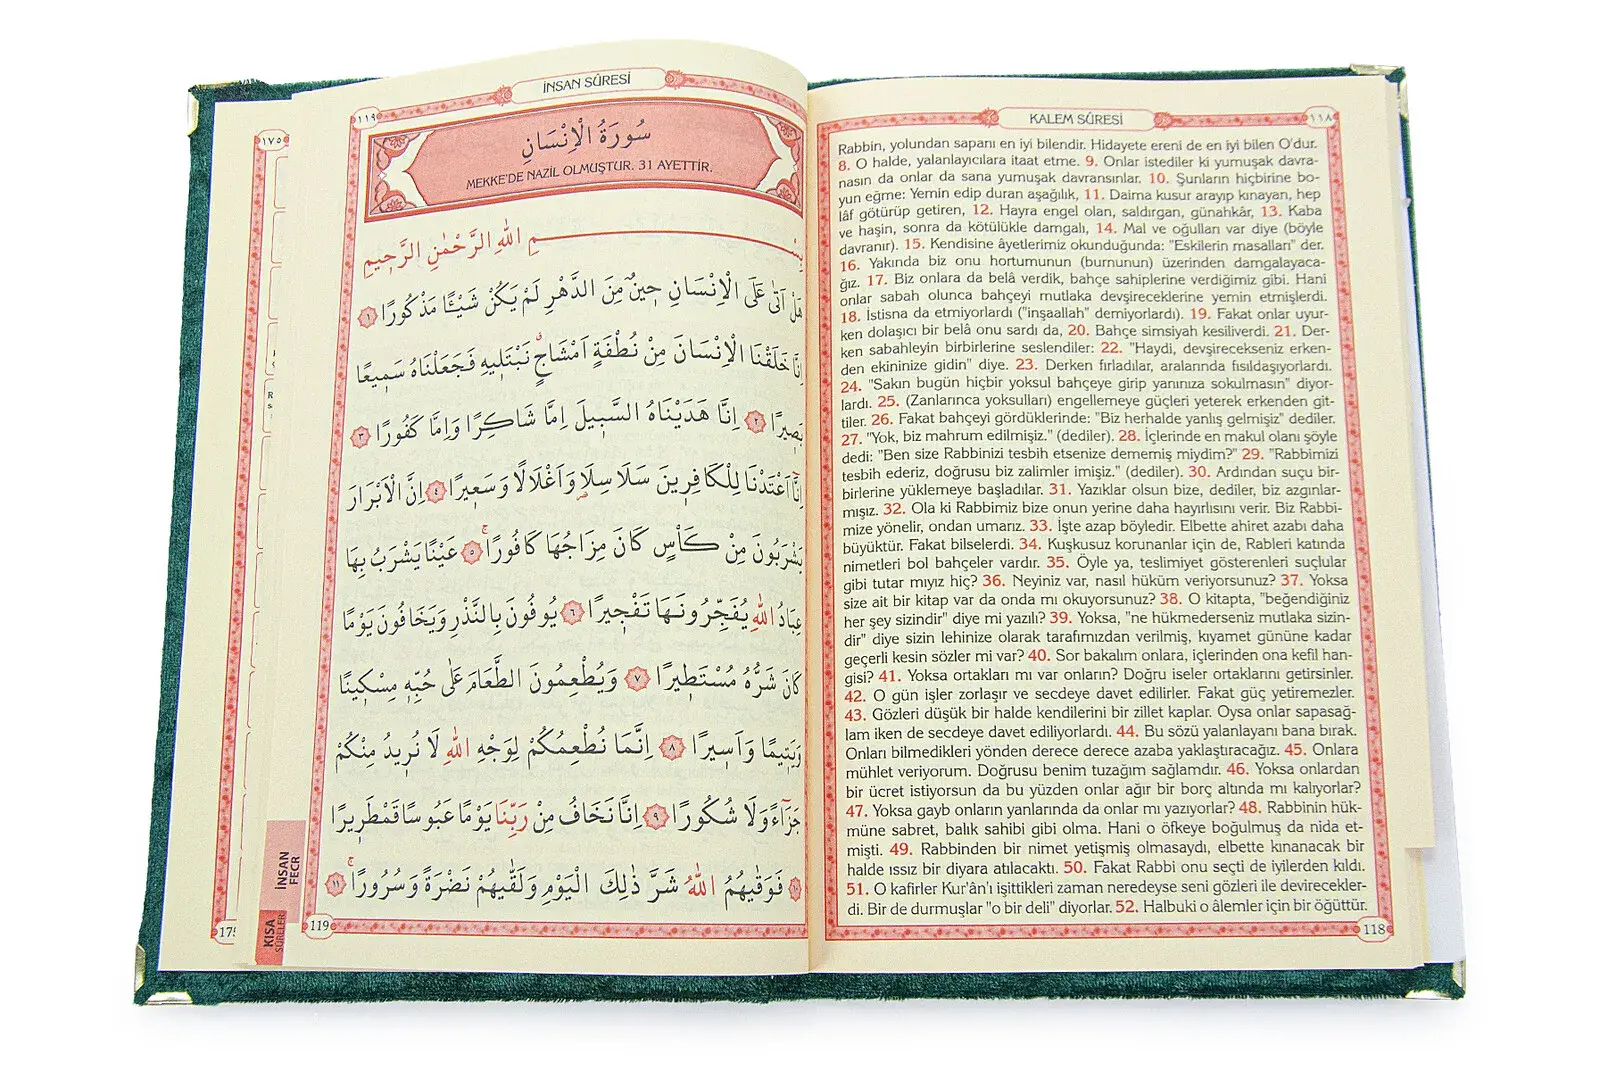 KALEM SÛRESİ
١١٨
Rabbin, yolundan sapanı en iyi bilendir. Hidayete ereni de en iyi bilen O'dur.
8. O halde, yalanlayıcılara itaat etme. 9. Onlar istediler ki yumuşak davra-
nasın da onlar da sana yumuşak davransınlar. 10. Şunların hiçbirine bo-
yun eğme: Yemin edip duran aşağılık, 11. Daima kusur arayıp kınayan, hep
lâf götürüp getiren, 12. Hayra engel olan, saldırgan, günahkâr, 13. Kaba
ve haşin, sonra da kötülükle damgalı, 14. Mal ve oğulları var diye (böyle
davranır). 15. Kendisine âyetlerimiz okunduğunda: "Eskilerin masalları" der.
16. Yakında biz onu hortumunun (burnunun) üzerinden damgalayaca-
ğız. 17. Biz onlara da belâ verdik, bahçe sahiplerine verdiğimiz gibi. Hani
onlar sabah olunca bahçeyi mutlaka devşireceklerine yemin etmişlerdi.
18. İstisna da etmiyorlardı ("inşaallah" demiyorlardı). 19. Fakat onlar uyur-
ken dolaşıcı bir belâ onu sardı da, 20. Bahçe simsiyah kesiliverdi. 21. Der-
ken sabahleyin birbirlerine seslendiler: 22. "Haydi, devşirecekseniz erken-
den ekininize gidin" diye. 23. Derken fırladılar, aralarında fısıldaşıyorlardı.
24. "Sakın bugün hiçbir yoksul bahçeye girip yanınıza sokulmasın" diyor-
lardı. 25. (Zanlarınca yoksulları) engellemeye güçleri yeterek erkenden git-
tiler. 26. Fakat bahçeyi gördüklerinde: "Biz herhalde yanlış gelmişiz" dediler.
27. "Yok, biz mahrum edilmişiz." (dediler). 28. İçlerinde en makul olanı şöyle
dedi: "Ben size Rabbinizi tesbih etsenize dememiş miydim?" 29. "Rabbimizi
tesbih ederiz, doğrusu biz zalimler imişiz." (dediler). 30. Ardından suçu bir-
birlerine yüklemeye başladılar. 31. Yazıklar olsun bize, dediler, biz azgınlar-
mışız. 32. Ola ki Rabbimiz bize onun yerine daha hayırlısını verir. Biz Rabbi-
mize yönelir, ondan umarız. 33. İşte azap böyledir. Elbette ahiret azabı daha
büyüktür. Fakat bilselerdi. 34. Kuşkusuz korunanlar için de, Rableri katında
nimetleri bol bahçeler vardır. 35. Öyle ya, teslimiyet gösterenleri suçlular
gibi tutar mıyız hiç? 36. Neyiniz var, nasıl hüküm veriyorsunuz? 37. Yoksa
size ait bir kitap var da onda mı okuyorsunuz? 38. O kitapta, "beğendiğiniz
her şey sizindir" diye mi yazılı? 39. Yoksa, "ne hükmederseniz mutlaka sizin-
dir" diye sizin lehinize olarak tarafımızdan verilmiş, kıyamet gününe kadar
geçerli kesin sözler mi var? 40. Sor bakalım onlara, içlerinden ona kefil han-
gisi? 41. Yoksa ortakları mı var onların? Doğru iseler ortaklarını getirsinler.
42. O gün işler zorlaşır ve secdeye davet edilirler. Fakat güç yetiremezler.
43. Gözleri düşük bir halde kendilerini bir zillet kaplar. Oysa onlar sapasağ-
lam iken de secdeye davet ediliyorlardı. 44. Bu sözü yalanlayanı bana bırak.
Onları bilmedikleri yönden derece derece azaba yaklaştıracağız. 45. Onlara
mühlet veriyorum. Doğrusu benim tuzağım sağlamdır. 46. Yoksa onlardan
bir ücret istiyorsun da bu yüzden onlar ağır bir borç altında mı kalıyorlar?
47. Yoksa gayb onların yanlarında da onlar mı yazıyorlar? 48. Rabbinin hük-
müne sabret, balık sahibi gibi olma. Hani o öfkeye boğulmuş da nida et-
mişti. 49. Rabbinden bir nimet yetişmiş olmasaydı, elbette kınanacak bir
halde ıssız bir diyara atılacaktı. 50. Fakat Rabbi onu seçti de iyilerden kıldı.
51. O kafirler Kur'ân'ı işittikleri zaman neredeyse seni gözleri ile devirecekler-
di. Bir de durmuşlar "o bir deli" diyorlar. 52. Halbuki o âlemler için bir öğüttür.
118
İNSAN SÛRESİ
١١٩
سُورَةُ الْاِنْسَانِ
MEKKE'DE NAZİL OLMUŞTUR. 31 AYETTİR.
بِسْمِ اللّٰهِ الرَّحْمٰنِ الرَّحِيمِ
هَلْ اَتٰى عَلَى الْاِنْسَانِ حِينٌ مِنَ الدَّهْرِ لَمْ يَكُنْ شَيْـًٔا مَذْكُورًا ١
اِنَّا خَلَقْنَا الْاِنْسَانَ مِنْ نُطْفَةٍ اَمْشَاجٍ نَبْتَلِيهِ فَجَعَلْنَاهُ سَمِيعًا
بَصِيرًا ٢ اِنَّا هَدَيْنَاهُ السَّبِيلَ اِمَّا شَاكِرًا وَاِمَّا كَفُورًا ٣
اِنَّٓا اَعْتَدْنَا لِلْكَافِرِينَ سَلَاسِلَا وَاَغْلَالًا وَسَعِيرًا ٤ اِنَّ الْاَبْرَارَ
يَشْرَبُونَ مِنْ كَأْسٍ كَانَ مِزَاجُهَا كَافُورًا ٥ عَيْنًا يَشْرَبُ بِهَا
عِبَادُ اللّٰهِ يُفَجِّرُونَهَا تَفْجِيرًا ٦ يُوفُونَ بِالنَّذْرِ وَيَخَافُونَ يَوْمًا
كَانَ شَرُّهُ مُسْتَطِيرًا ٧ وَيُطْعِمُونَ الطَّعَامَ عَلٰى حُبِّهِ مِسْكِينًا
وَيَتِيمًا وَاَسِيرًا ٨ اِنَّمَا نُطْعِمُكُمْ لِوَجْهِ اللّٰهِ لَا نُرِيدُ مِنْكُمْ
جَزَٓاءً وَلَا شُكُورًا ٩ اِنَّا نَخَافُ مِنْ رَبِّنَا يَوْمًا عَبُوسًا قَمْطَرِيرًا
١٠ فَوَقٰيهُمُ اللّٰهُ شَرَّ ذٰلِكَ الْيَوْمِ وَلَقّٰيهُمْ نَضْرَةً وَسُرُورًا ١١
119
İNSAN
FECR
KISA
SÛRELER
١٧٥
175